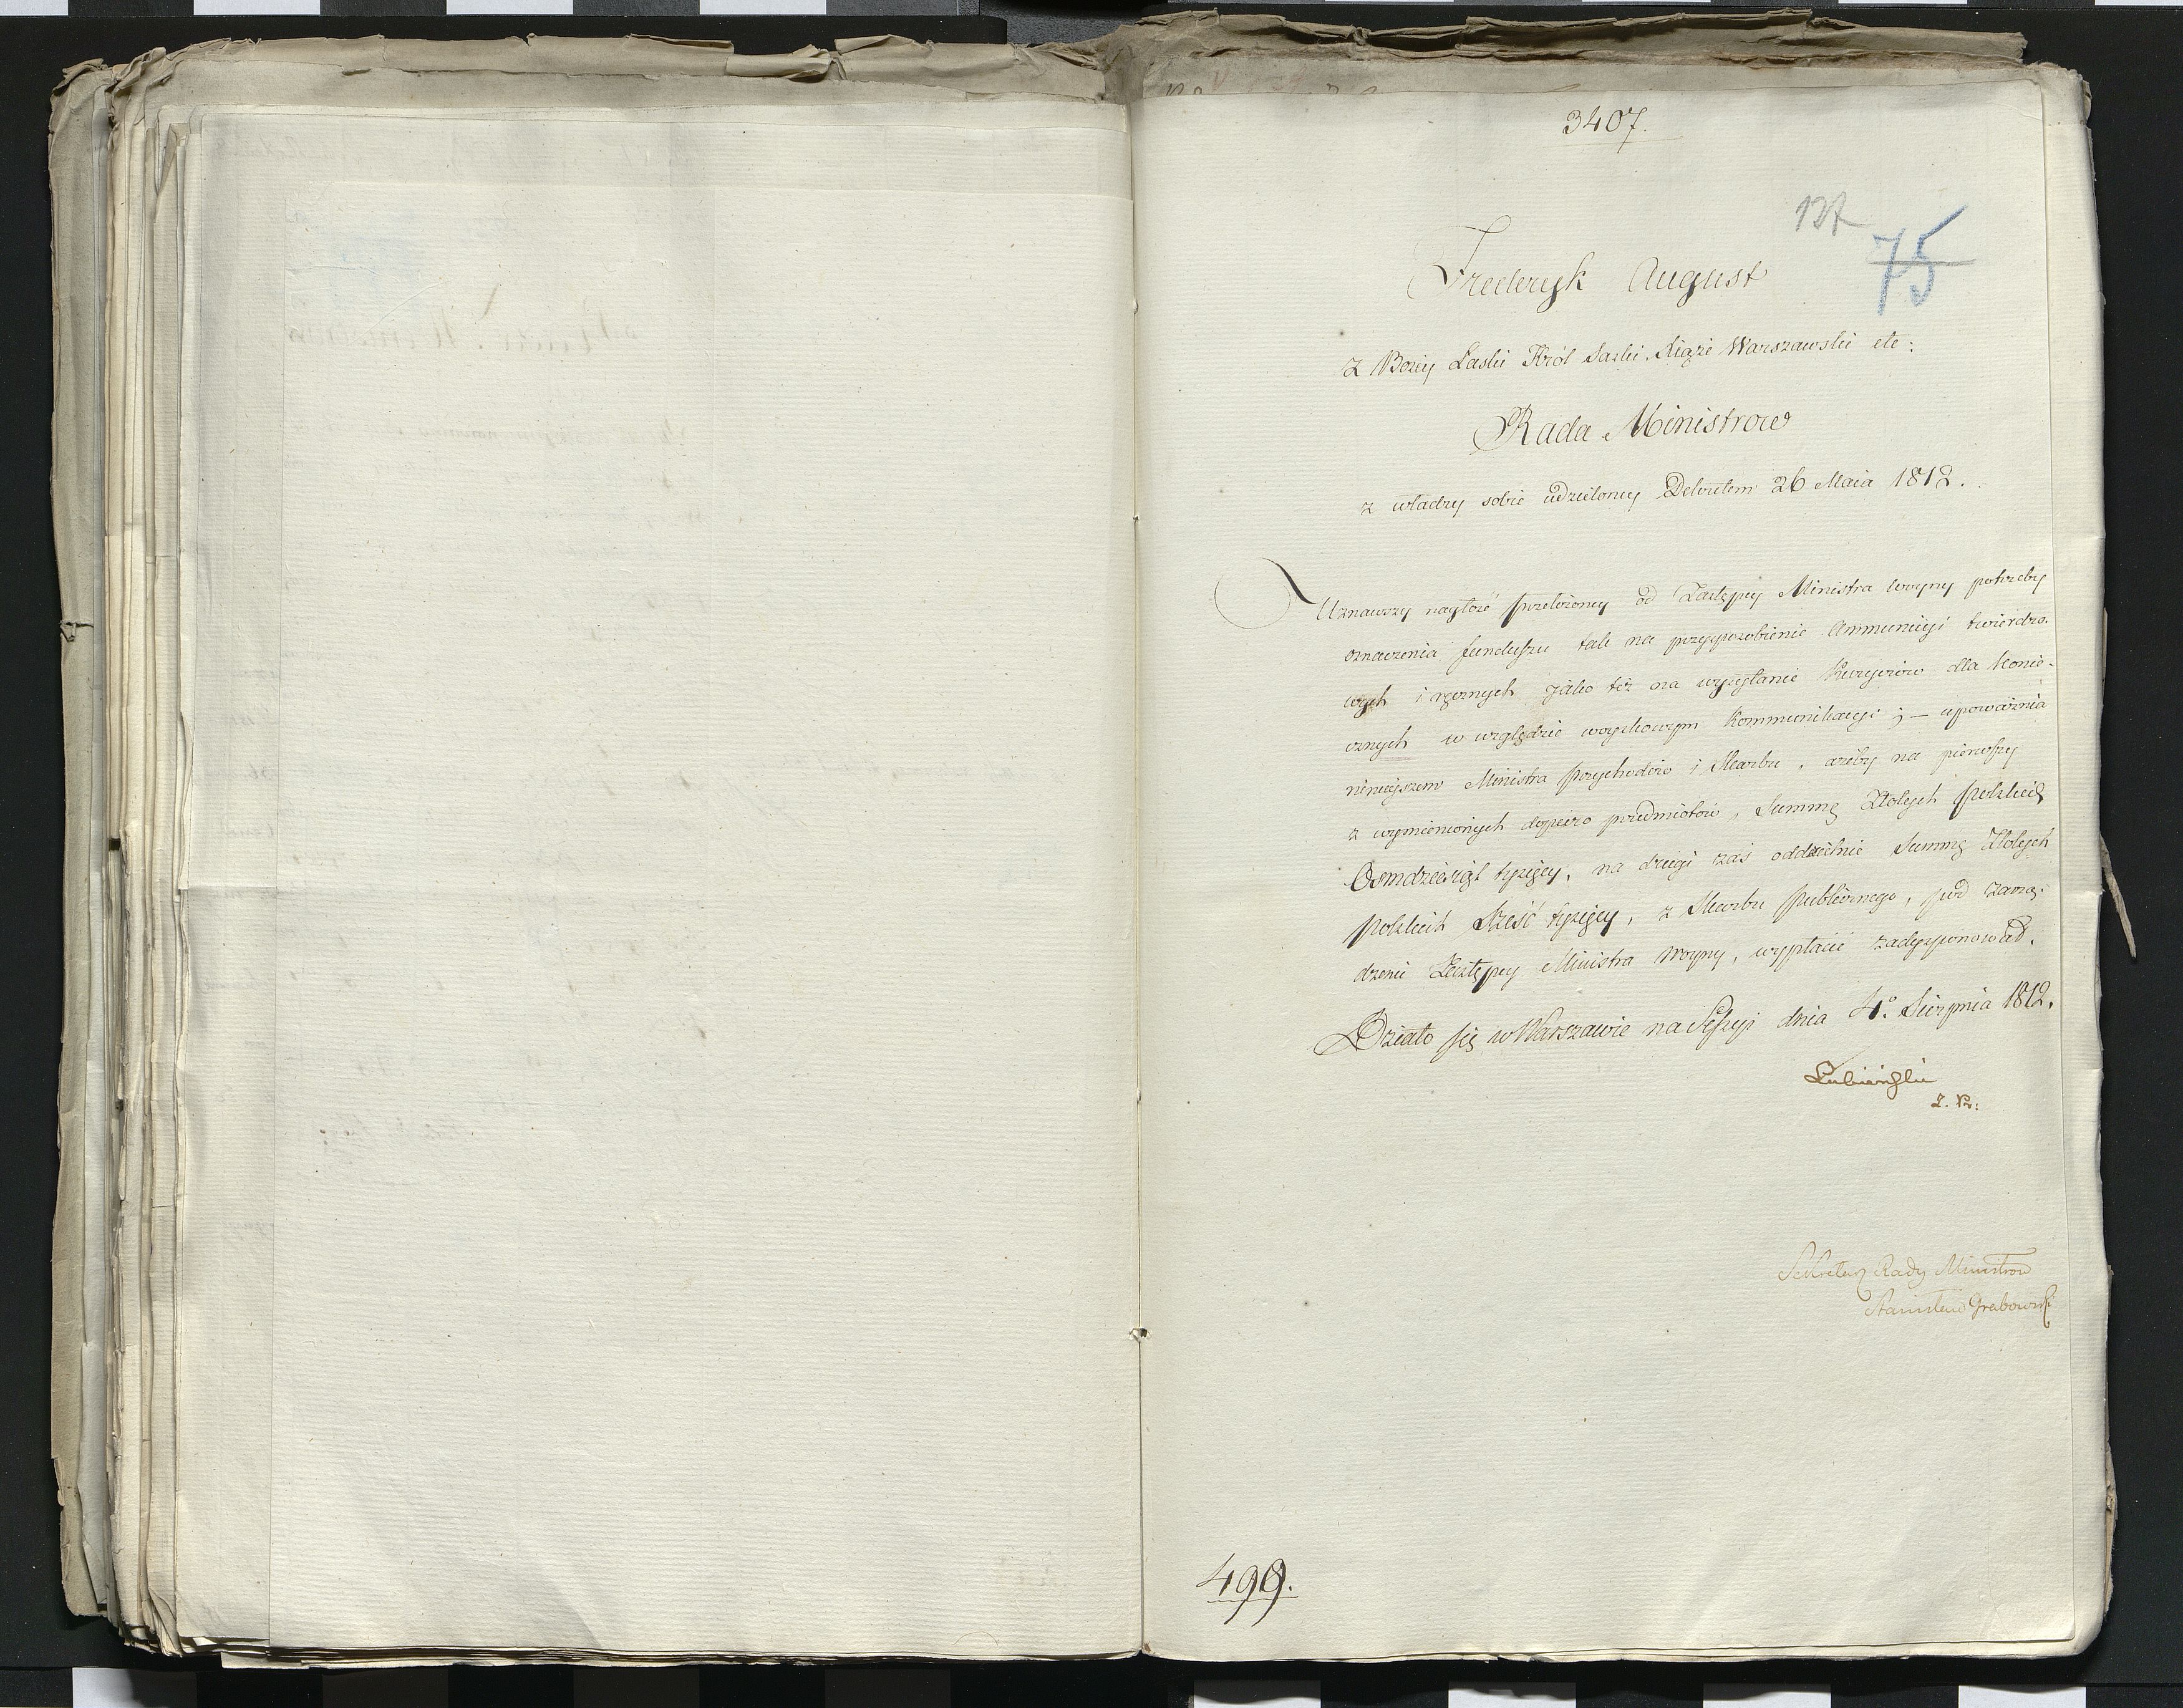 3407.
127
75
Fryderyk August
z Bożey Łaski Król Saski Xiąże Warszawski etc:
Rada Ministrow
z władzy sobie udzieloney Dekretem 26 Maia 1812.
Uznawszy nagłość przełożoney od Zastępcy Ministra woyny potrzeby
oznaczenia funduszu tak na przysposobienie Ammunicyi twierdzo-
wych i ręcznych jako też na wysyłanie Kuryerów dla konie-
cznych w względzie woyskowym Kommunikacyi; – upoważnia
ninieyszem Ministra Przychodów i Skarbu, ażeby na pierwszy
z wymienionych dopiero przedmiotów, Summę Złotych Polskich
Osmdziesiąt tysięcy, na drugi zaś oddzielnie Summę Złotych
Polskich Sześć tysięcy, z Skarbu Publicznego, pod zarzą-
dzenie Zastępcy Ministra Woyny, wypłacić zadysponował.
Działo się w Warszawie na Sessyi dnia 4º Sierpnia 1812.
Łubieński
Z. Pr:
Sekretarz Rady Ministrow
Stanisław Grabowski
499.